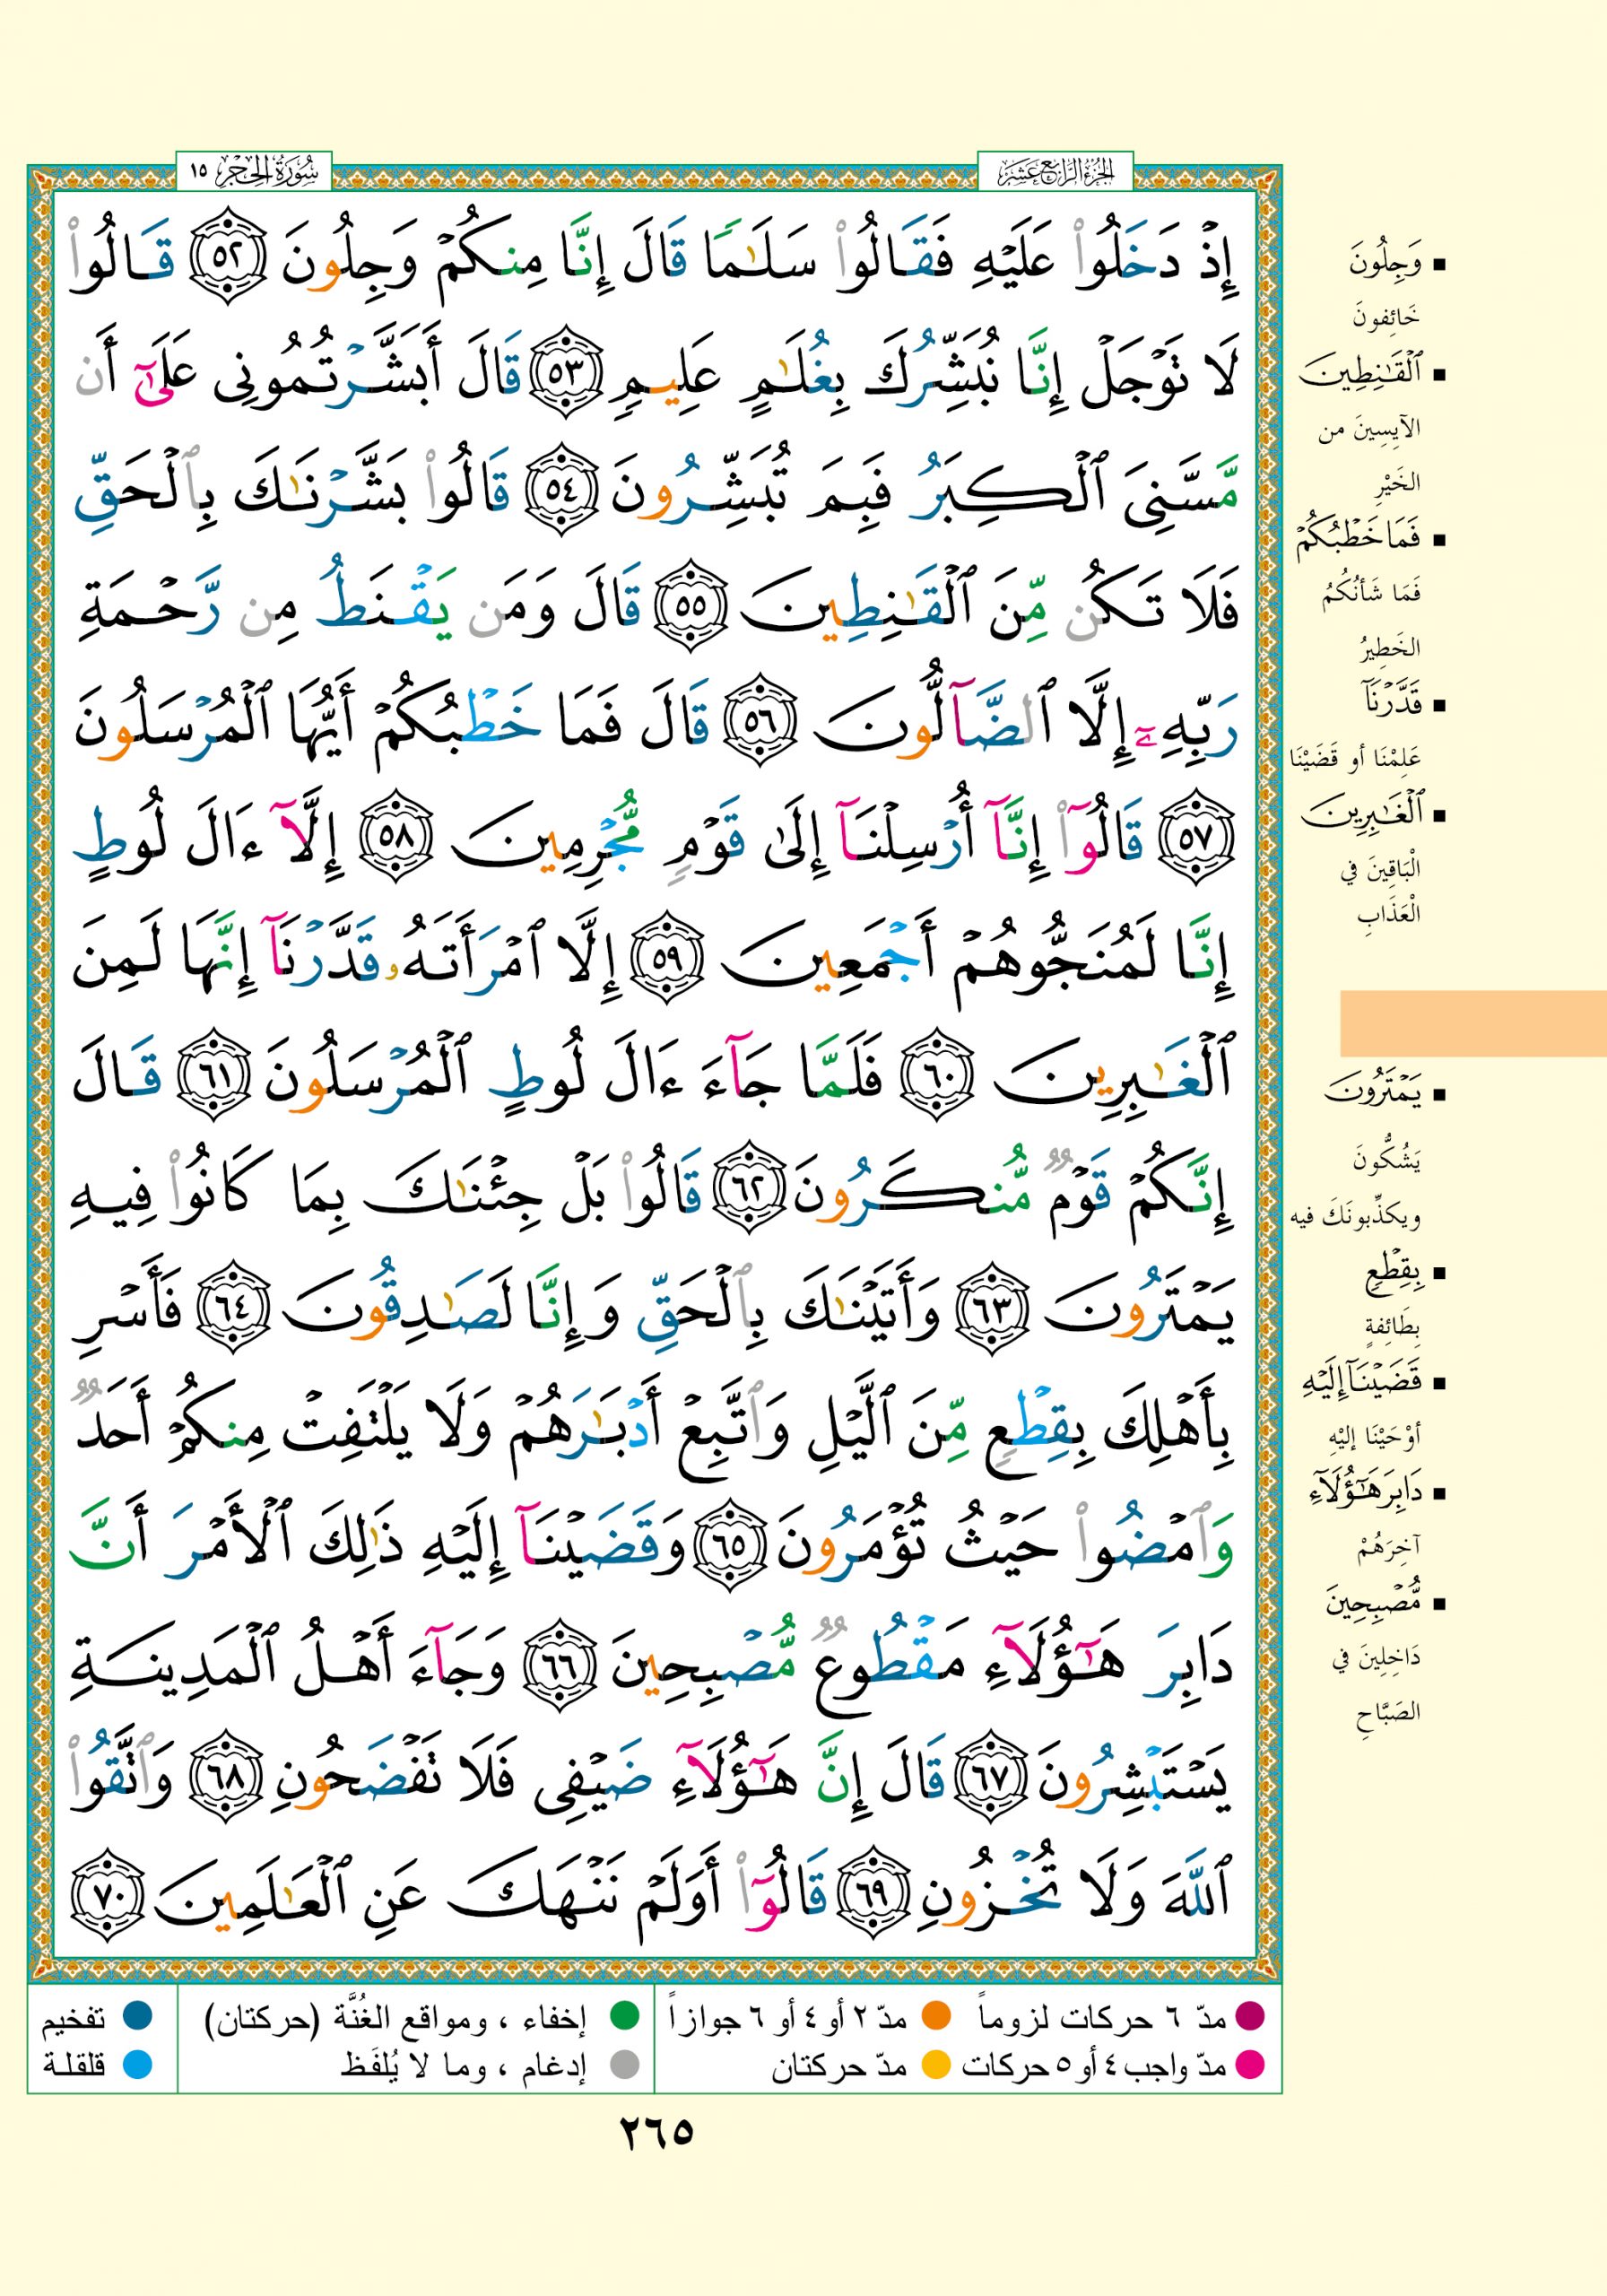 الجزء الرابع عشر
سُورَةُ الحِجْر ١٥
إِذْ دَخَلُوا۟ عَلَيْهِ فَقَالُوا۟ سَلَـٰمًا قَالَ إِنَّا مِنكُمْ وَجِلُونَ ٥٢ قَالُوا۟
لَا تَوْجَلْ إِنَّا نُبَشِّرُكَ بِغُلَـٰمٍ عَلِيمٍ ٥٣ قَالَ أَبَشَّرْتُمُونِى عَلَىٰٓ أَن
مَّسَّنِىَ ٱلْكِبَرُ فَبِمَ تُبَشِّرُونَ ٥٤ قَالُوا۟ بَشَّرْنَـٰكَ بِٱلْحَقِّ
فَلَا تَكُن مِّنَ ٱلْقَـٰنِطِينَ ٥٥ قَالَ وَمَن يَقْنَطُ مِن رَّحْمَةِ
رَبِّهِۦٓ إِلَّا ٱلضَّآلُّونَ ٥٦ قَالَ فَمَا خَطْبُكُمْ أَيُّهَا ٱلْمُرْسَلُونَ
٥٧ قَالُوٓا۟ إِنَّآ أُرْسِلْنَآ إِلَىٰ قَوْمٍ مُّجْرِمِينَ ٥٨ إِلَّآ ءَالَ لُوطٍ
إِنَّا لَمُنَجُّوهُمْ أَجْمَعِينَ ٥٩ إِلَّا ٱمْرَأَتَهُۥ قَدَّرْنَآ إِنَّهَا لَمِنَ
ٱلْغَـٰبِرِينَ ٦٠ فَلَمَّا جَآءَ ءَالَ لُوطٍ ٱلْمُرْسَلُونَ ٦١ قَالَ
إِنَّكُمْ قَوْمٌ مُّنكَرُونَ ٦٢ قَالُوا۟ بَلْ جِئْنَـٰكَ بِمَا كَانُوا۟ فِيهِ
يَمْتَرُونَ ٦٣ وَأَتَيْنَـٰكَ بِٱلْحَقِّ وَإِنَّا لَصَـٰدِقُونَ ٦٤ فَأَسْرِ
بِأَهْلِكَ بِقِطْعٍ مِّنَ ٱلَّيْلِ وَٱتَّبِعْ أَدْبَـٰرَهُمْ وَلَا يَلْتَفِتْ مِنكُمْ أَحَدٌ
وَٱمْضُوا۟ حَيْثُ تُؤْمَرُونَ ٦٥ وَقَضَيْنَآ إِلَيْهِ ذَٰلِكَ ٱلْأَمْرَ أَنَّ
دَابِرَ هَـٰٓؤُلَآءِ مَقْطُوعٌ مُّصْبِحِينَ ٦٦ وَجَآءَ أَهْلُ ٱلْمَدِينَةِ
يَسْتَبْشِرُونَ ٦٧ قَالَ إِنَّ هَـٰٓؤُلَآءِ ضَيْفِى فَلَا تَفْضَحُونِ ٦٨ وَٱتَّقُوا۟
ٱللَّهَ وَلَا تُخْزُونِ ٦٩ قَالُوٓا۟ أَوَلَمْ نَنْهَكَ عَنِ ٱلْعَـٰلَمِينَ ٧٠
▪ وَجِلُونَ
خَائِفونَ
▪ ٱلْقَـٰنِطِينَ
الآيِسِينَ من
الخَيْرِ
▪ فَمَا خَطْبُكُمْ
فَمَا شَأنُكُمُ
الخَطِيرُ
▪ قَدَّرْنَآ
عَلِمْنَا أو قَضَيْنَا
▪ ٱلْغَـٰبِرِينَ
الْبَاقِينَ في
الْعَذَابِ
▪ يَمْتَرُونَ
يَشُكُّونَ
ويكذِّبونَكَ فيه
▪ بِقِطْعٍ
بِطَائِفةٍ
▪ قَضَيْنَآ إِلَيْهِ
أوْحَيْنَا إليْهِ
▪ دَابِرَ هَـٰٓؤُلَآءِ
آخِرَهُمْ
▪ مُّصْبِحِينَ
دَاخِلِينَ في
الصَبَّاحِ
مدّ ٦ حركات لزوماً مدّ ٢ أو ٤ أو ٦ جوازاً إخفاء ، ومواقع الغُنَّة (حركتان) تفخيم
مدّ واجب ٤ أو ٥ حركات مدّ حركتان إدغام ، وما لا يُلفَظ قلقلة
٢٦٥